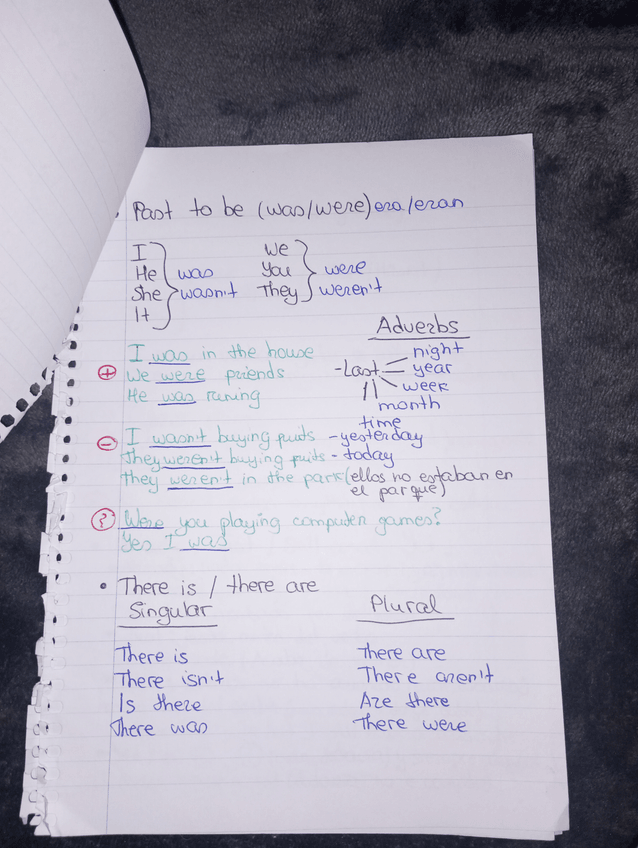 Past to be (was/were) era/eran
I
He
She
It
was
wasn't
We
You
They
were
weren't
Adverbs
- Last
night
year
week
month
time
- yesterday
- today
+ I was in the house
We were friends
He was runing
- I wasn't buying fruits
They weren't buying fruits
they weren't in the park (ellos no estaban en
el parque)
? Were you playing computer games?
Yes I was
• There is / there are
Singular
Plural
There is
There are
There isn't
There aren't
Is there
Are there
There was
There were